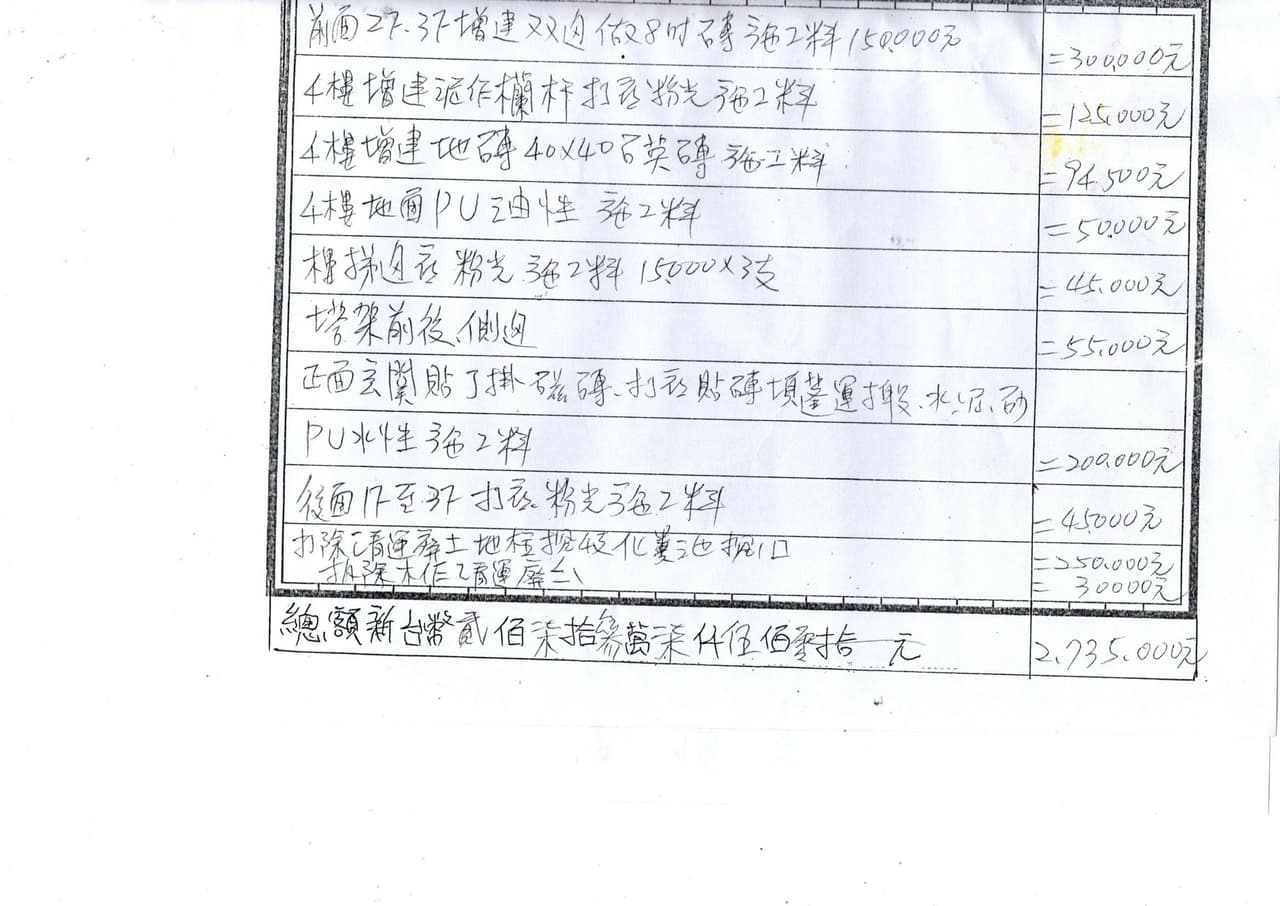 前面2F.3F增建双边做8吋磚施工料150.000元 =300.000元
4樓增建泥作欄杆打底粉光施工料 =125.000元
4樓增建地磚40×40石英磚施工料 =94.500元
4樓地面PU油性 施工料 =50.000元
樓梯边底粉光施工料15000×3支 =45.000元
塔架前後、側边 =55.000元
正面玄関貼丁掛磁磚、打底貼磚填縫運搬、水泥、砂
PU水性施工料 =200.000元
後面1F至3F打底粉光施工料 =45000元
打除清運廢土地柱挖4支化糞池挖1口 =250.000元
拆除木作清運廢 = 30000元
總額新台幣貳佰柒拾參萬柒仟伍佰零拾 元 2.735.000元